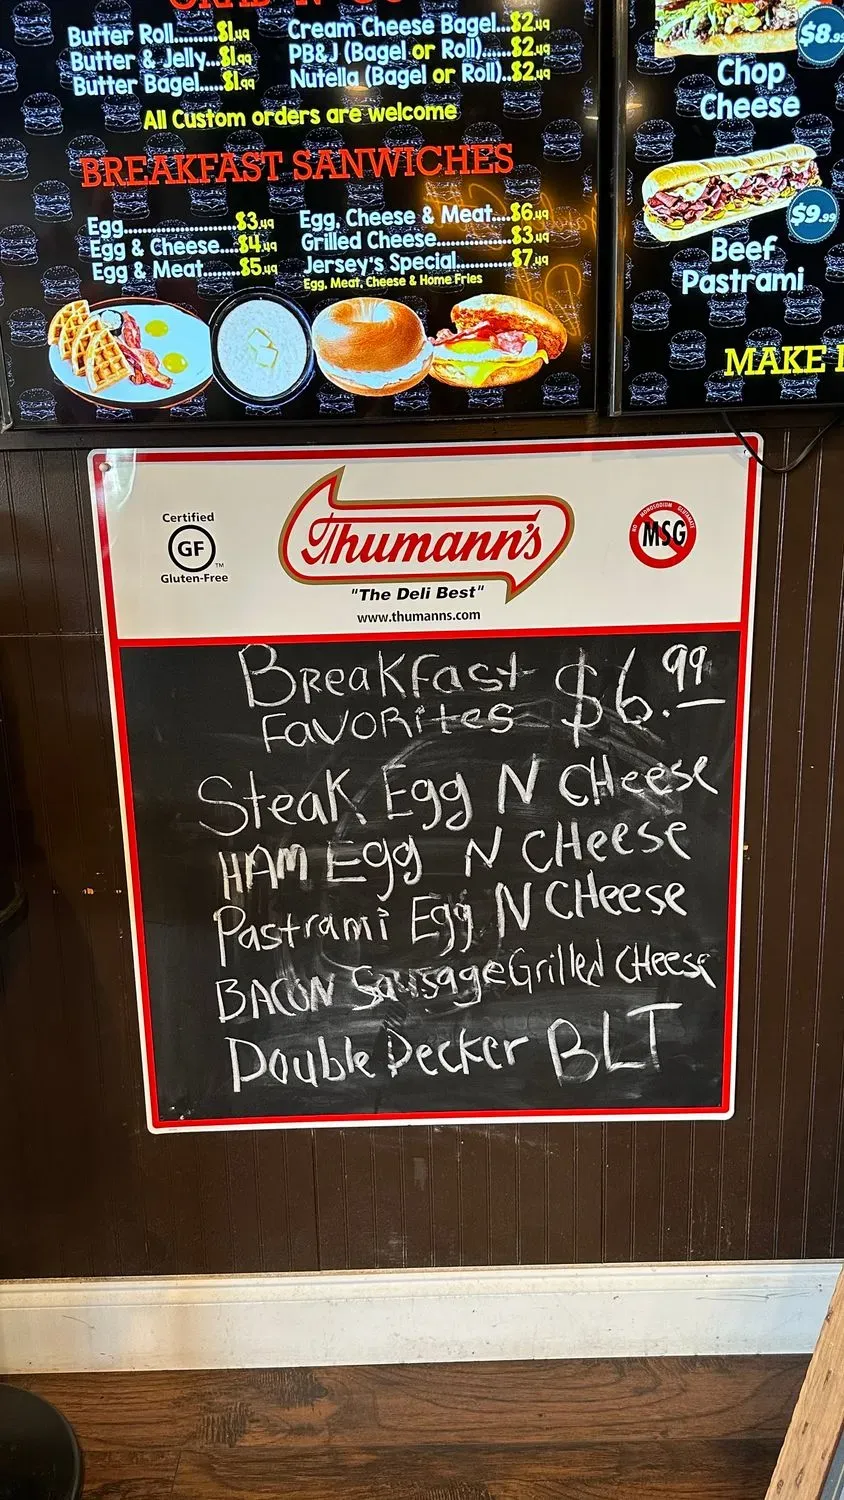 Butter Roll.......$1.49
Butter & Jelly....$1.99
Butter Bagel.....$1.99
Cream Cheese Bagel...$2.49
PB&J (Bagel or Roll).....$2.49
Nutella (Bagel or Roll)..$2.49
All Custom orders are welcome
BREAKFAST SANWICHES
Egg......................$3.49
Egg & Cheese...$4.49
Egg & Meat.......$5.49
Egg, Cheese & Meat....$6.49
Grilled Cheese..............$3.49
Jersey's Special............$7.49
Egg, Meat, Cheese & Home Fries
$8.99
Chop
Cheese
$9.99
Beef
Pastrami
MAKE
Certified
GF
TM
Gluten-Free
Thumann's
"The Deli Best"
www.thumanns.com
NO MONOSODIUM GLUTAMATE
MSG
Breakfast $6.99
FAVORites
Steak Egg N CHeese
HAM Egg N CHeese
Pastrami Egg N CHeese
BACON Sausage Grilled CHeese
Double Decker BLT